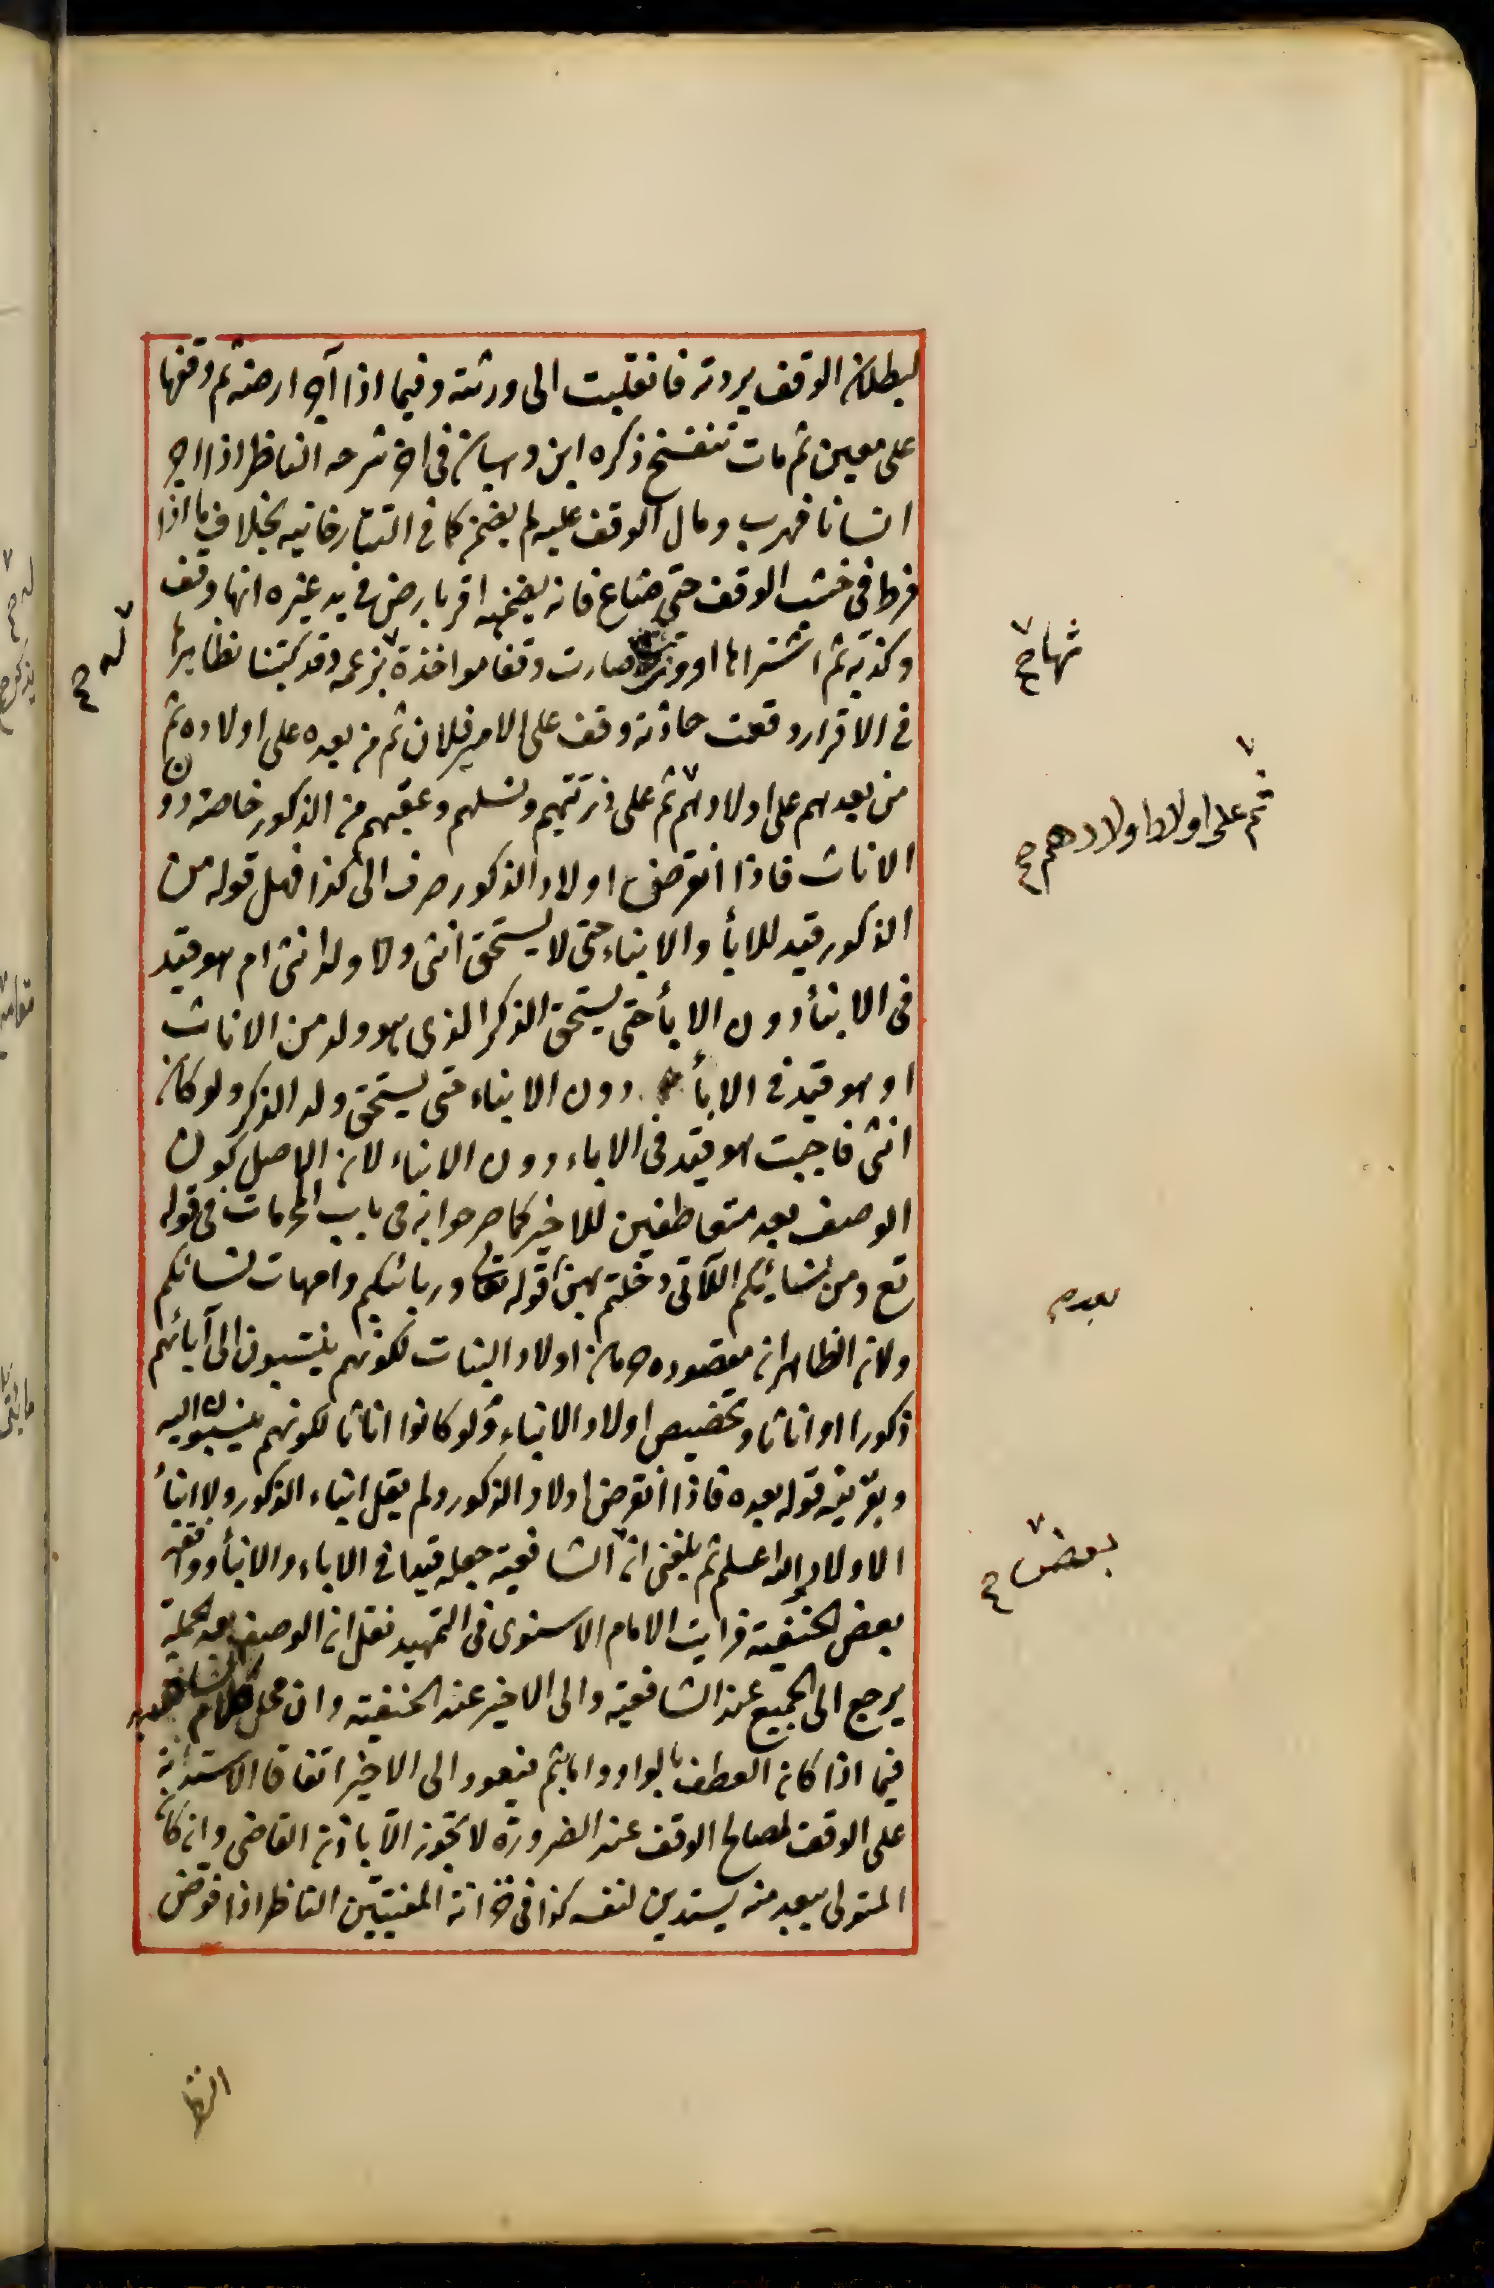 لبطلان الوقف بردته فانقلبت الى ورثته وفيما اذا آجر ارضه ثم وقفها
على معين ثم مات تنفسخ ذكره ابن وهبان في اخر شرحه الناظر اذا اجر
انسانا فهرب ومال الوقف عليه لم يضمن كما في التتارخانيه بخلاف ما اذا
فرط في خشب الوقف حتى ضاع فانه يضمنه اقر بارض في يد غيره انها وقف
وكذبه ثم اشتراها او ورثها صارت وقفا مواخذة بزعمه وقد كتبنا نظايرها
في الاقرار وقعت حادثة وقف على الامير فلان ثم من بعده على اولاده ثم
من بعدهم على اولادهم ثم على ذريتهم ونسلهم وعقبهم من الذكور خاصة دون
الاناث فاذا انقرض اولاد الذكور صرف الى كذا فهل قوله من
الذكور قيد للابأ والابناء حتى لا يستحق انثى ولا ولد انثى ام هو قيد
في الابنأ دون الابأ حتى يستحق الذكر الذي هو ولد من الاناث
او هو قيد في الابأ دون الابناء حتى يستحق ولد الذكر ولو كان
انثى فاجبت هو قيد في الاباء دون الابناء لان الاصل كون
الوصف بعد متعاطفين للاخير كما صرحوا به في باب المحرمات في قوله
تع ومن نسائكم اللآتي دخلتم بهن قوله تعالى وربائبكم وامهات نسائكم
ولان الظاهر ان مقصوده حرمان اولاد البنات لكونهم ينتسبون الى آبائهم
ذكورا او اناثا وتخصيص اولاد الابناء ولو كانوا اناثا لكونهم ينسبون اليه
وبقرينة قوله بعده فاذا انقرض اولاد الذكور ولم يقل ابناء الذكور ولا ابنأ
الاولاد والله اعلم ثم بلغني ان الشافعية جعله قيدا في الاباء والابنأ ووافقه
بعض الحنفية فرايت الامام الاسنوي في التمهيد نقل ان الوصف بعد الجملة
يرجع الى الجميع عند الشافعية والى الاخير عند الحنفية وان محل كلام الشافعيه
فيما اذا كان العطف بالواو واما بثم فيعود الى الاخير اتفاقا الاستدانة
على الوقف لمصالح الوقف عند الضرورة لا تجوز الا باذن القاضي وان كان
المتولي ببعد منه يستدين لنفسه كذا في خزانة المفتيين الناظر اذا فوض
له صح
ثها صح
ثم على اولاد اولادهم صح
بعض صح
النظر